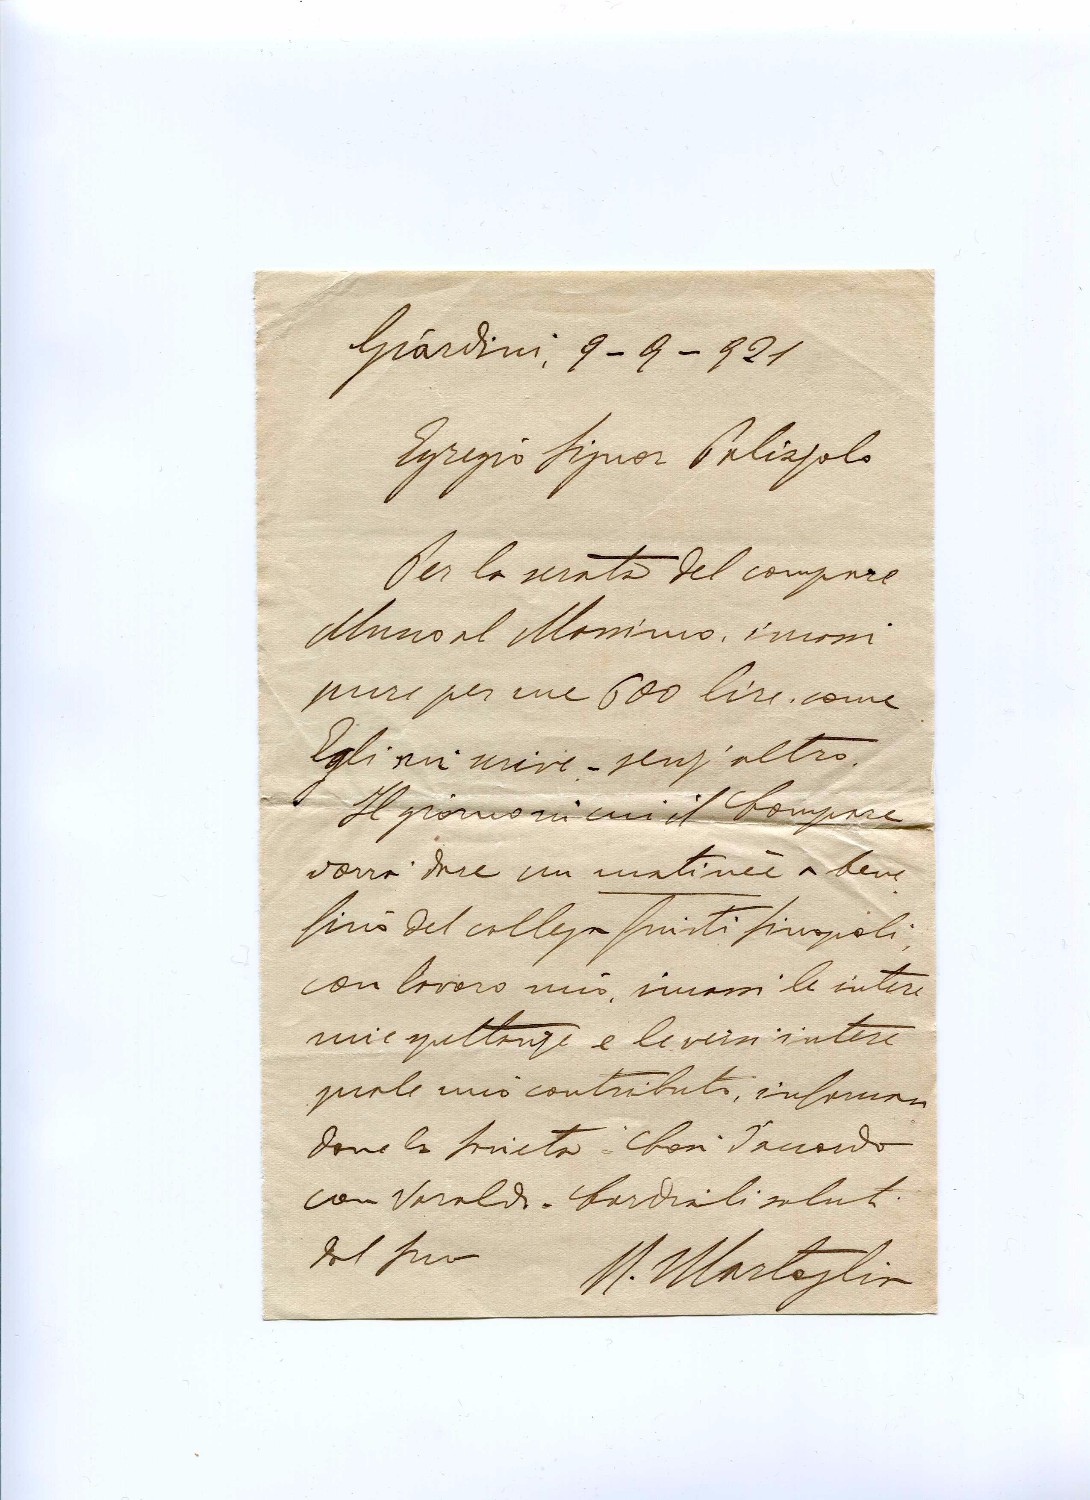 Giardini, 9-9-921
Egregio Signor Polizzolo
Per la serata del compare
Musco al Massimo. incassi
pure per me 600 lire. come
Egli mi scrive - senz'altro.
Il giorno in cui il Compare
vorrà dare un matinée a bene
ficio del collega Giusti Sinopoli,
con lavoro mio, incassi le intere
mie spettanze e le versi intere
quale mio contributo, informan
done la Società. Così d'accordo
con Varaldo. Cordiali saluti
dal suo
N. Martoglio